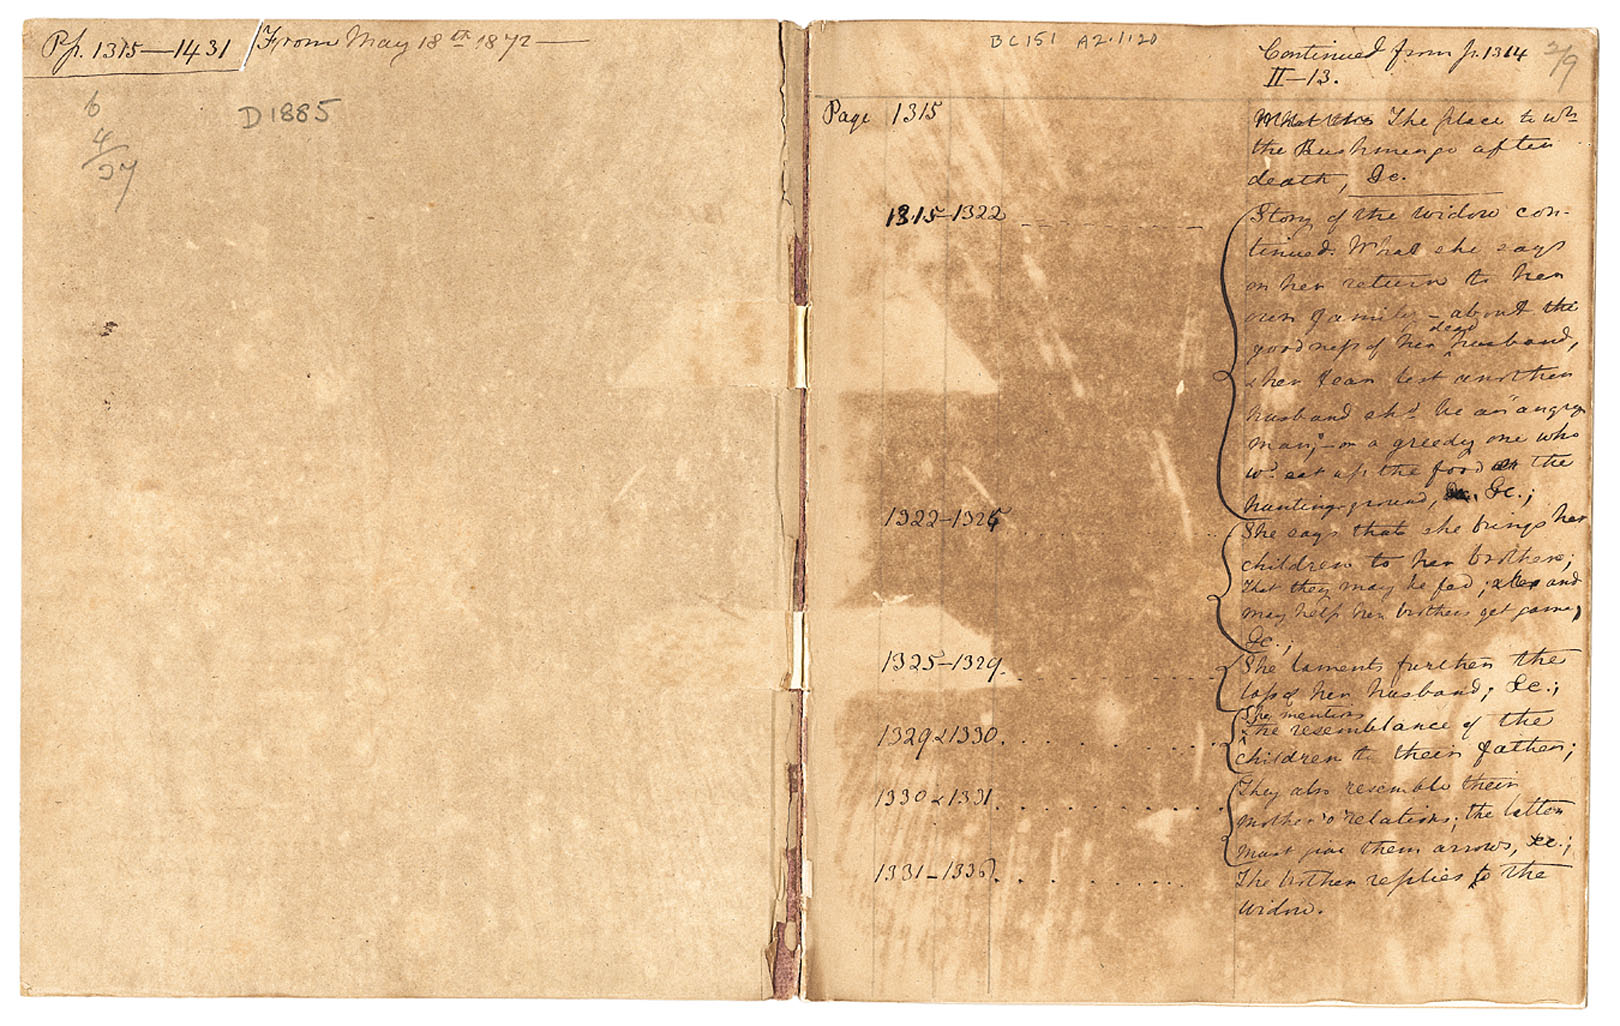 Pp. 1315—1431 From May 18th 1872—
6
4/27
D1885
BC151 A2.1.20
Continued from p. 1314
II—13.
2/9
Page 1315
The place to wh
the Bushmen go after
death, &c.
1315—1322
Story of the widow con-
tinued. What she says
on her return to her
own family — about the
goodness of her dead husband,
& her fear lest another
husband shd. be an "angry
man," — or a greedy one who
wd. eat up the food on the
hunting ground, &c.;
1322—1325
She says that she brings her
children to her brothers;
That they may be fed; and
may help her brothers get game,
&c.;
1325—1329.
She laments further the
loss of her husband; &c.;
1329 & 1330.
She mentions
The resemblance of the
children to their father;
1330 & 1331.
They also resemble their
mother's relations; the latter
must give them arrows, &c.;
1331—1336.
The brother replies to the
widow.